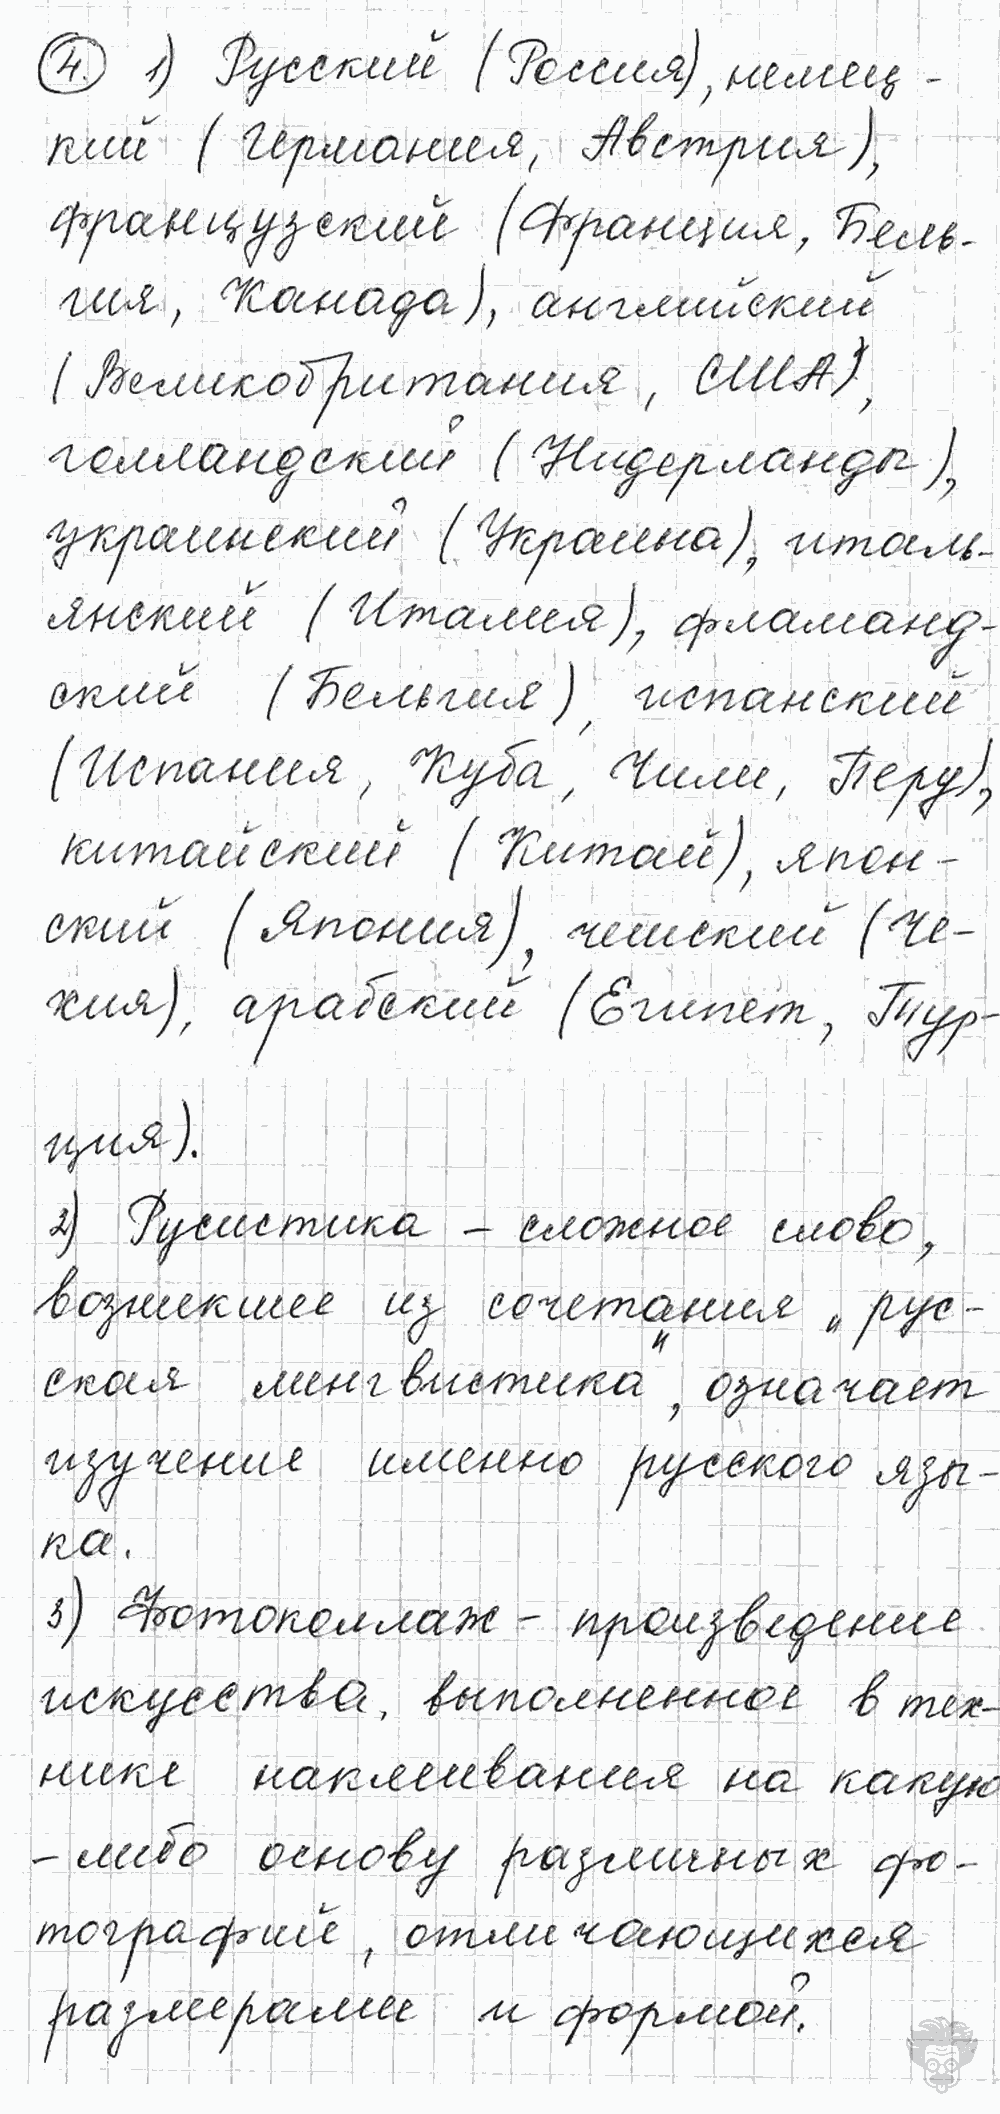 4. 1) Русский (Россия), немец-
кий (Германия, Австрия),
французский (Франция, Бель-
гия, Канада), английский
(Великобритания, США),
голландский (Нидерланды),
украинский (Украина), италь-
янский (Италия), фламанд-
ский (Бельгия), испанский
(Испания, Куба, Чили, Перу),
китайский (Китай), япон-
ский (Япония), чешский (Че-
хия), арабский (Египет, Тур-
ция).
2) Русистика – сложное слово,
возникшее из сочетания „рус-
ская лингвистика“, означает
изучение именно русского язы-
ка.
3) Фотоколлаж – произведение
искусства, выполненное в тех-
нике наклеивания на какую
-либо основу различных фо-
тографий, отличающихся
размерами и формой.